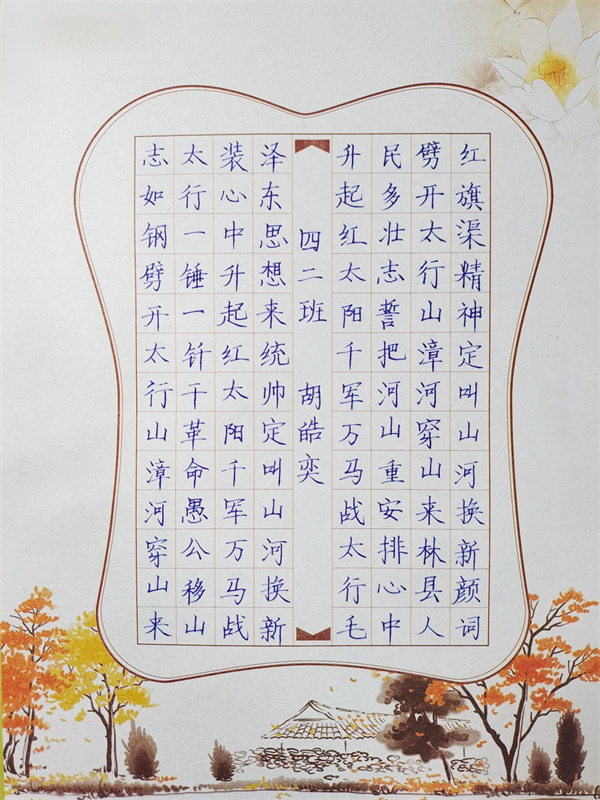 红旗渠精神定叫山河换新颜词
劈开太行山漳河穿山来林县人
民多壮志誓把河山重安排心中
升起红太阳千军万马战太行毛
四二班 胡皓奕
泽东思想来统帅定叫山河换新
装心中升起红太阳千军万马战
太行一锤一钎干革命愚公移山
志如钢劈开太行山漳河穿山来